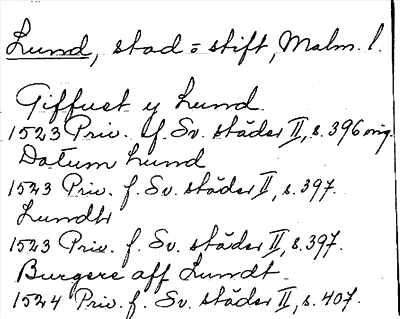 Lund, stad o stift, Malm. l.
Giffuet y Lund
1523 Priv. f. Sv. städer II, s. 396 orig.
Datum Lund
1523 Priv. f. Sv. städer II, s. 397.
Lundh
1523 Priv. f. Sv. städer II, s. 397.
Burgere aff Lundt
1524 Priv. f. Sv. städer II, s. 407.